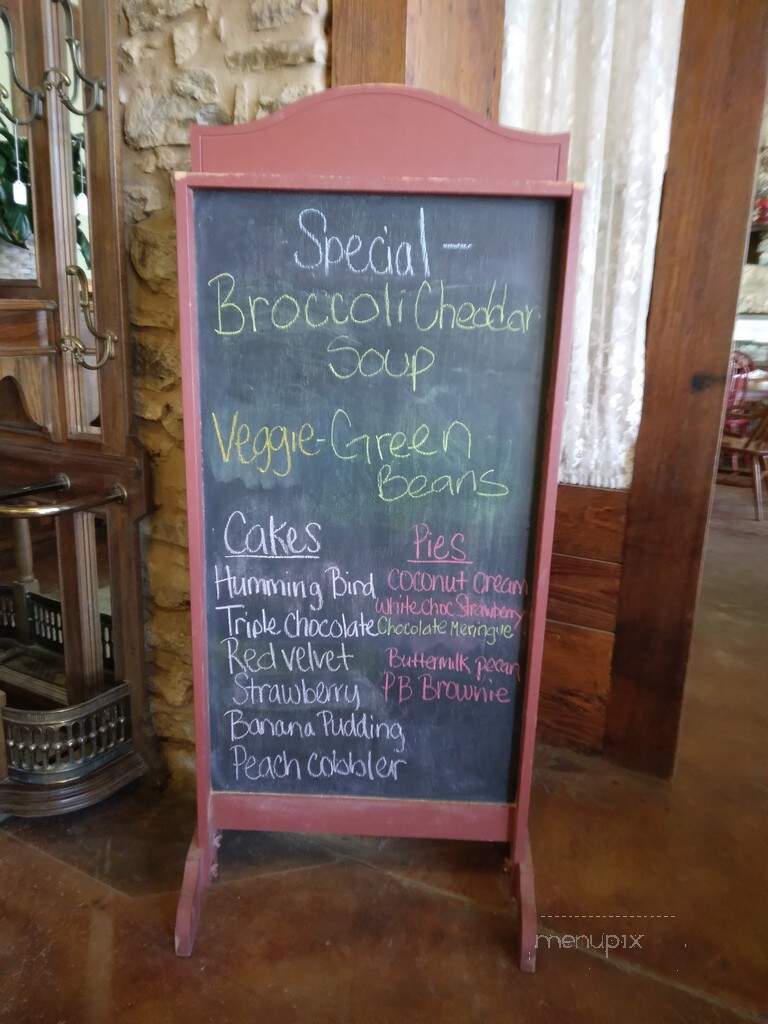 Special -
Broccoli Cheddar
Soup
Veggie - Green
Beans
Cakes
Humming Bird
Triple Chocolate
Red Velvet
Strawberry
Banana Pudding
Peach cobbler
Pies
coconut cream
White choc Strawberry
Chocolate Meringue
Buttermilk pecan
PB Brownie
menupix